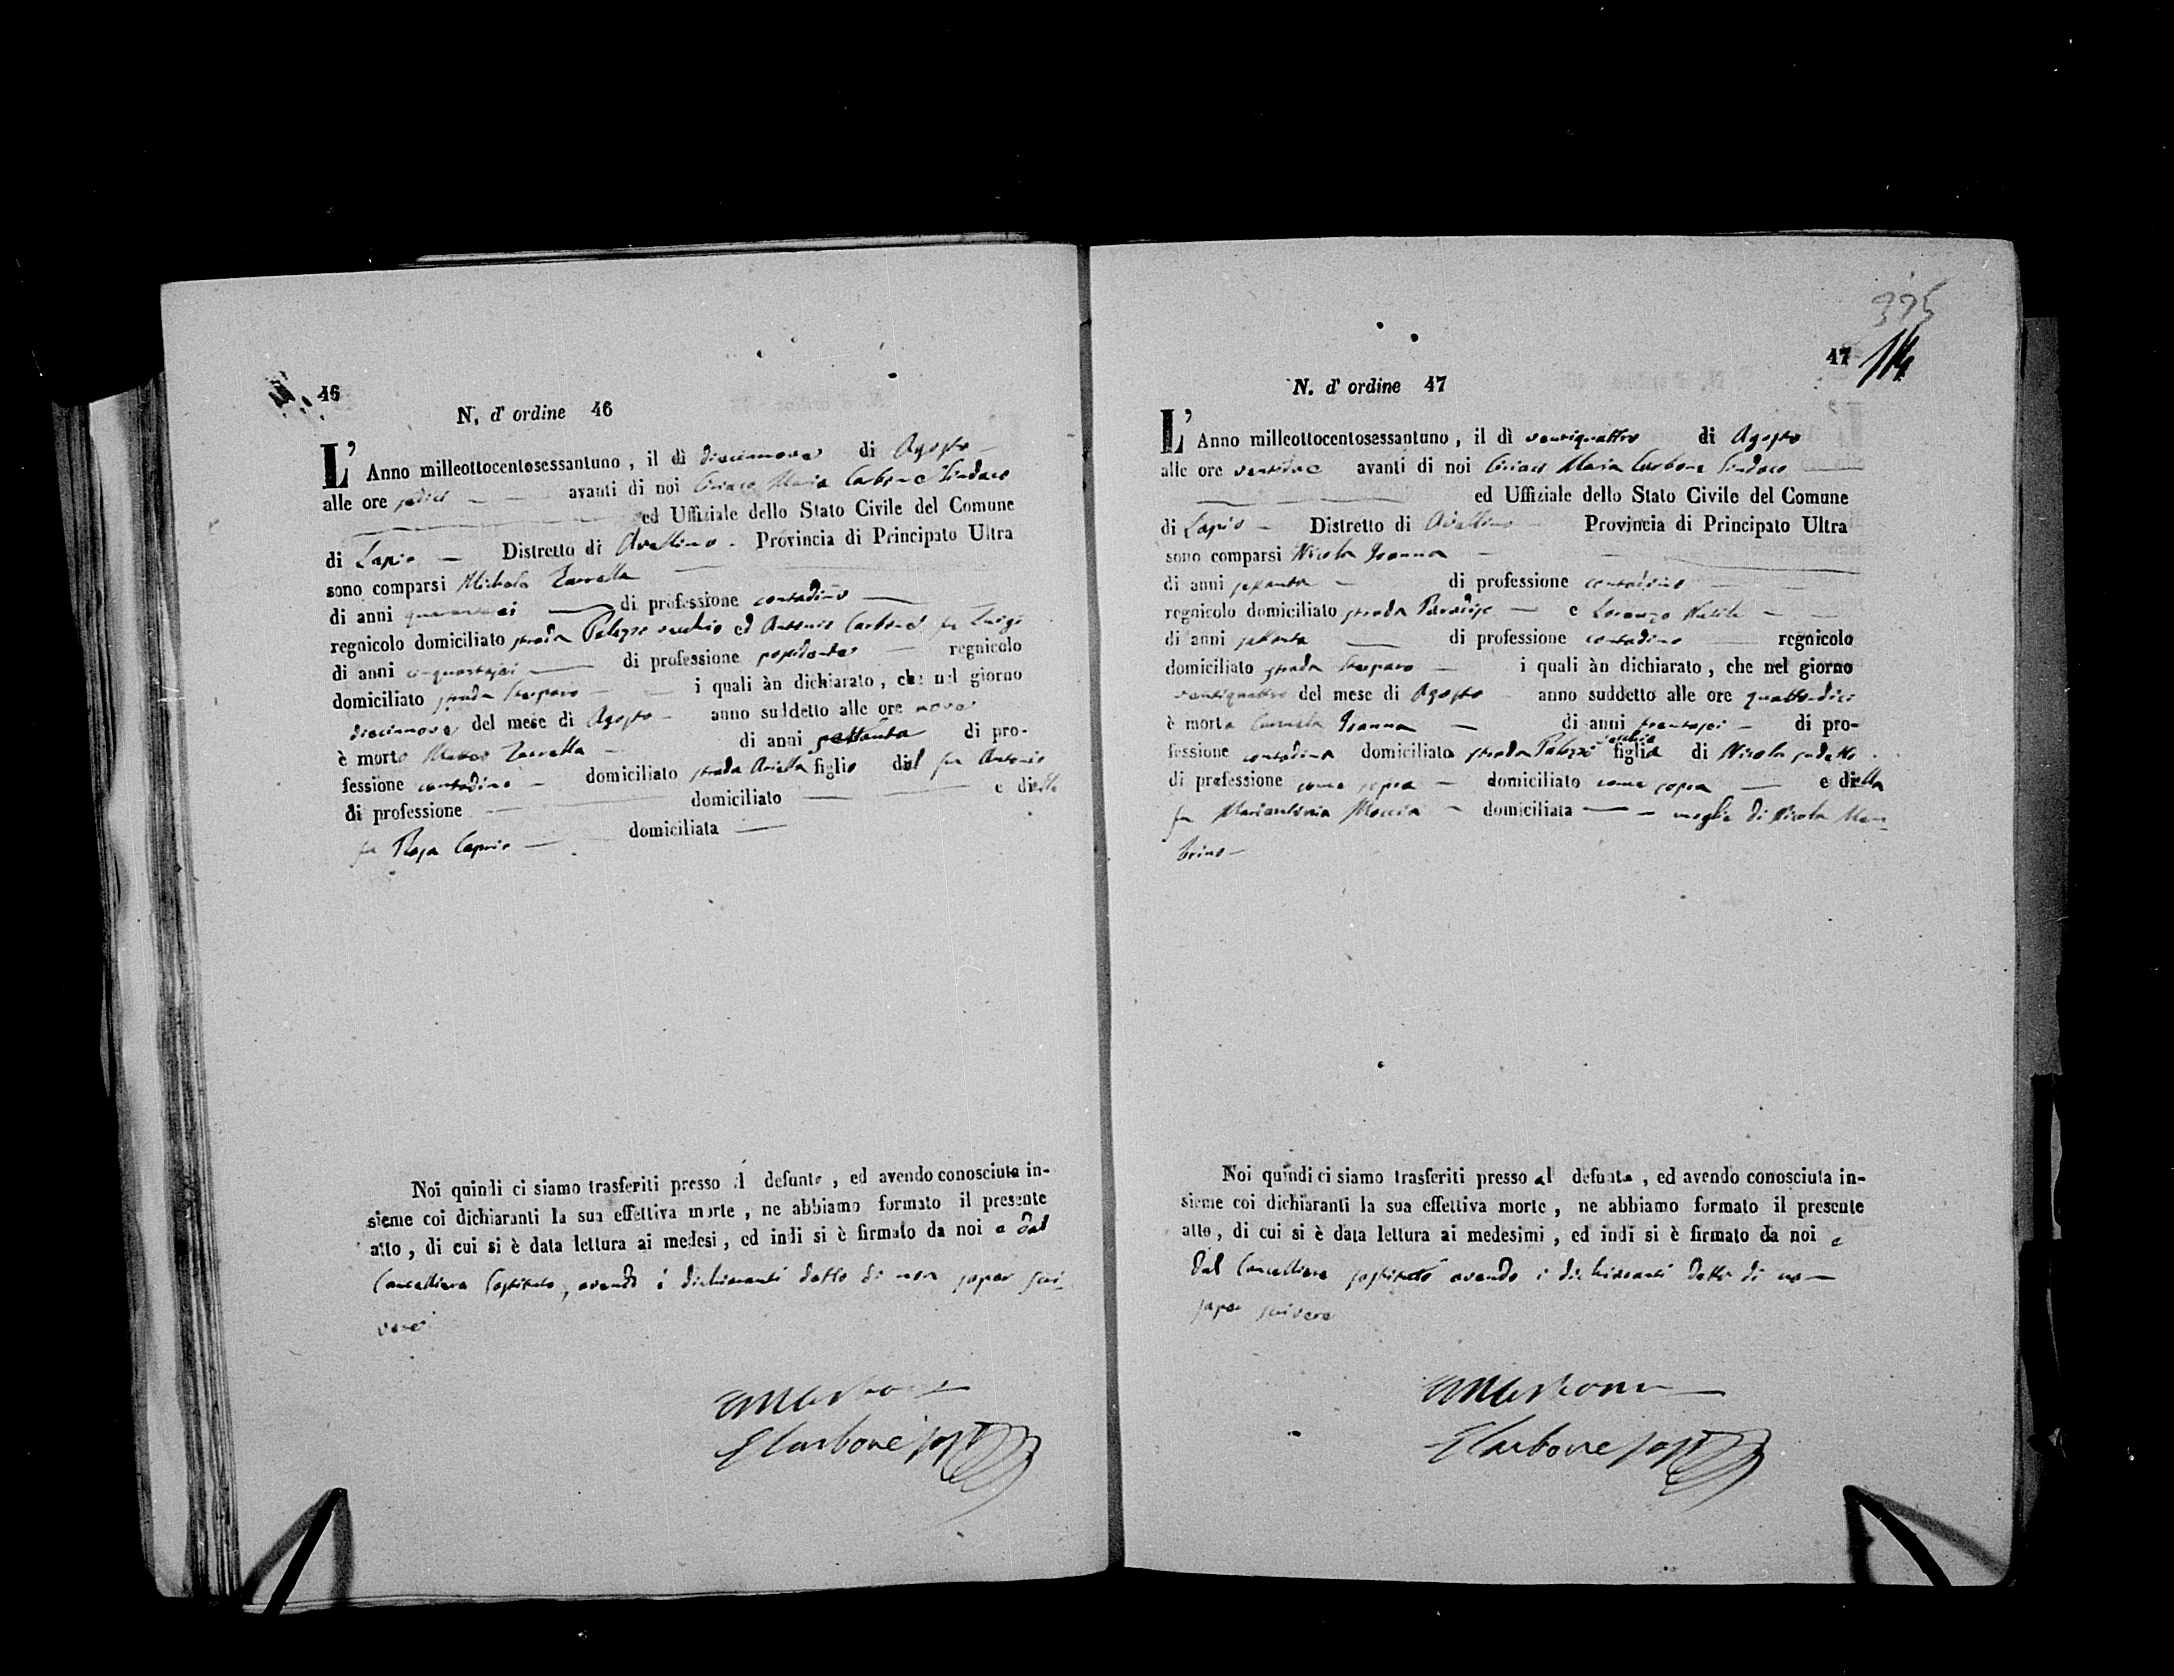 46
N. d' ordine 46
L' Anno milleottocentosessantuno, il dì diecinove di Agosto
alle ore sedici avanti di noi Ciriaco Maria Carbone Sindaco
ed Uffiziale dello Stato Civile del Comune
di Lapio Distretto di Avellino Provincia di Principato Ultra
sono comparsi Michele Zarrella
di anni di professione contadino
regnicolo domiciliato strada Palazzo vecchio ed Antonio Carbone fu Luigi
di anni cinquantasei di professione possidente regnicolo
domiciliato strada i quali àn dichiarato, che nel giorno
diecinove del mese di Agosto anno suddetto alle ore nove
è morto Zarrella di anni settanta di pro-
fessione contadino domiciliato strada Ariella figlio del fu Antonio
di professione domiciliato e della
fu Rosa Caprio domiciliata
Noi quindi ci siamo trasferiti presso il defunto, ed avendo conosciuta in-
sieme coi dichiaranti la sua effettiva morte, ne abbiamo formato il presente
atto, di cui si è data lettura ai medesi, ed indi si è firmato da noi e dal
Cancelliere Sostituto, avendo i dichiaranti detto di non saper scri-
vere
Carbone
Carbone sost
375
47
N. d' ordine 47
L' Anno milleottocentosessantuno, il dì ventiquattro di Agosto
alle ore ventidue avanti di noi Ciriaco Maria Carbone Sindaco
ed Uffiziale dello Stato Civile del Comune
di Lapio Distretto di Avellino Provincia di Principato Ultra
sono comparsi Nicola Ioanna
di anni sessanta di professione contadino
regnicolo domiciliato strada Paradiso e Lorenzo
di anni settanta di professione contadino regnicolo
domiciliato strada i quali àn dichiarato, che nel giorno
ventiquattro del mese di Agosto anno suddetto alle ore quattordici
è morta Carmela Ioanna di anni trentasei di pro-
fessione contadina domiciliata strada Palazzo vecchio figlia di Nicola sudetto
di professione come sopra domiciliato come sopra e della
fu Mariantonia Moccia domiciliata moglie di Nicola Mam-
brino
Noi quindi ci siamo trasferiti presso al defunta, ed avendo conosciuta in-
sieme coi dichiaranti la sua effettiva morte, ne abbiamo formato il presente
atto, di cui si è data lettura ai medesimi, ed indi si è firmato da noi e
dal Cancelliere sostituto avendo i dichiaranti detto di non
saper scrivere
Carbone
Carbone sost